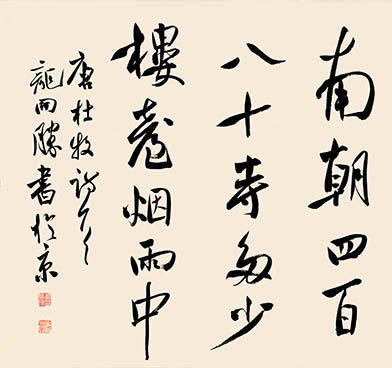 南朝四百
八十寺多少
樓臺烟雨中
唐杜牧詩
龍開勝書於京